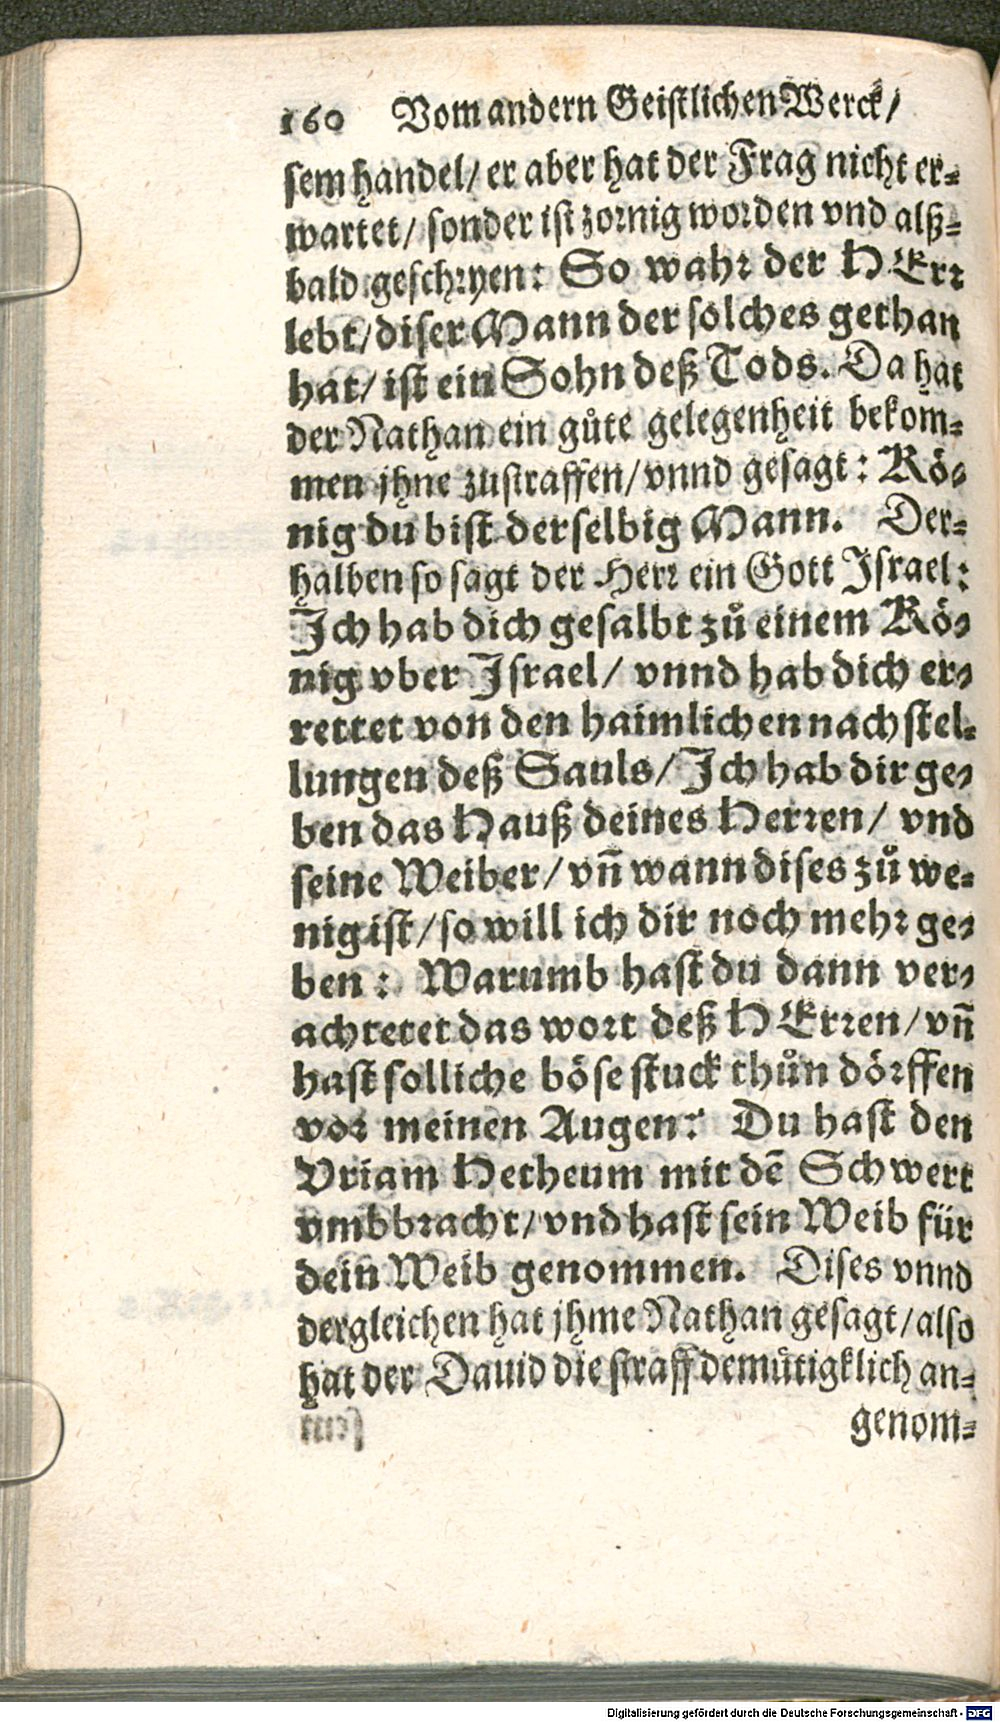 160 Vom andern Geistlichen Werck/
sem handel/ er aber hat der Frag nicht er-
wartet/ sonder ist zornig worden vnd alß-
bald geschryen: So wahr der HErr
lebt/ diser Mann der solches gethan
hat/ ist ein Sohn deß Tods. Da hat
der Nathan ein gůte gelegenheit bekom-
men jhne zustraffen/ vnnd gesagt: Kö-
nig du bist derselbig Mann. Der-
halben so sagt der Herr ein Gott Israel:
Ich hab dich gesalbt zů einem Kö-
nig vber Israel/ vnnd hab dich er-
rettet von den haimlichen nachstel-
lungen deß Sauls/ Ich hab dir ge-
ben das Hauß deines Herren/ vnd
seine Weiber/ vñ wann dises zů we-
nig ist/ so will ich dir noch mehr ge-
ben: Warumb hast du dann ver-
achtetet das wort deß HErren/ vñ
hast solliche böse stuck thůn dörffen
vor meinen Augen? Du hast den
Vriam Hetheum mit dē Schwert
vmbbracht/ vnd hast sein Weib für
dein Weib genommen. Dises vnnd
dergleichen hat jhme Nathan gesagt/ also
hat der Dauid die straff demütigklich an-
genom-
Digitalisierung gefördert durch die Deutsche Forschungsgemeinschaft - DFG